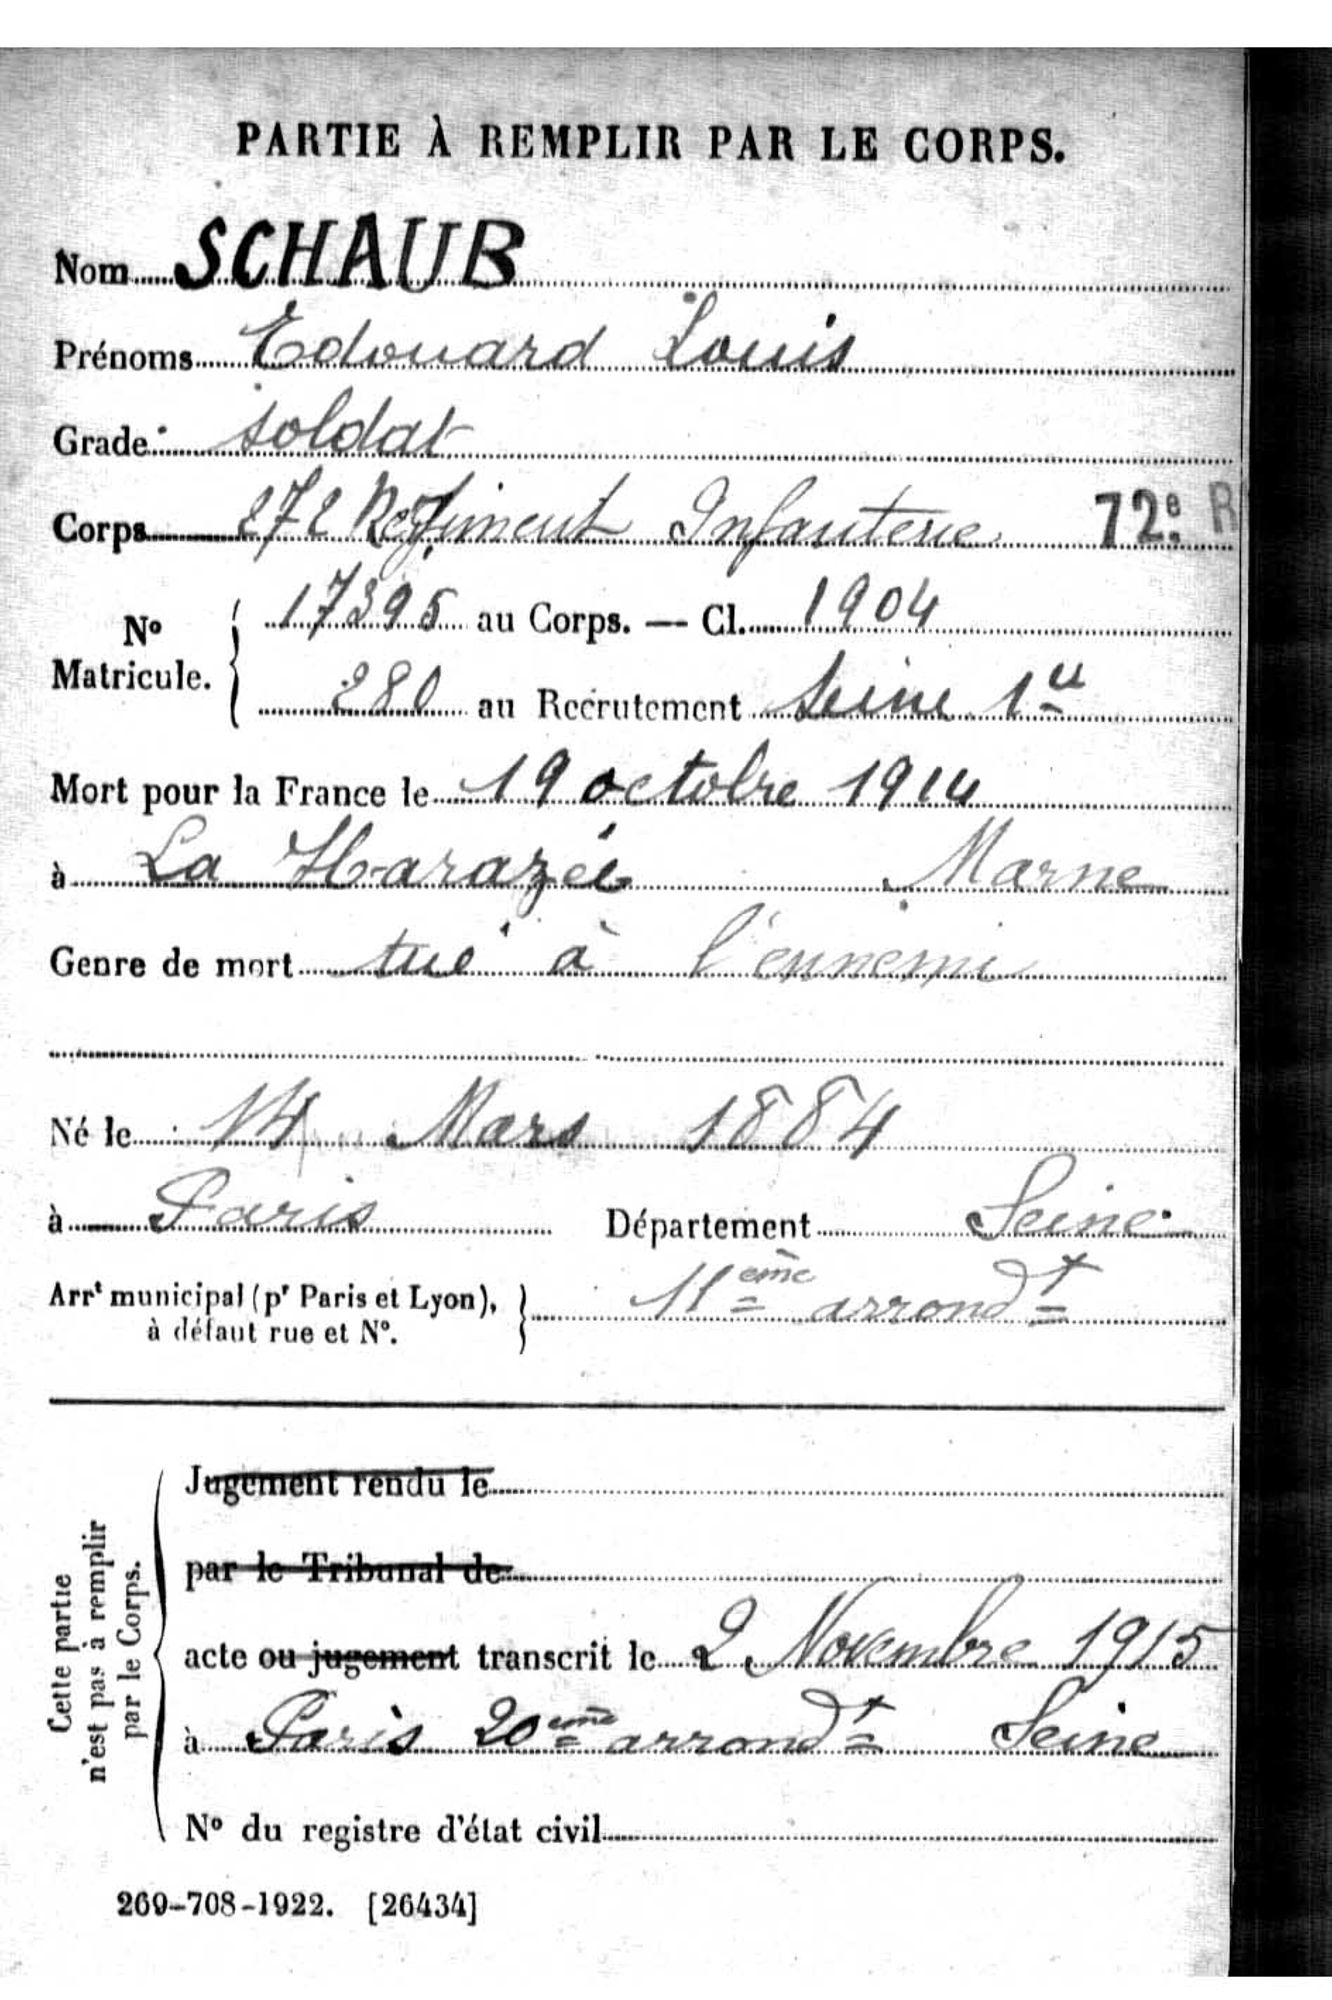 PARTIE À REMPLIR PAR LE CORPS.
Nom SCHAUB
Prénoms Edouard Louis
Grade soldat
Corps 272 Régiment Infanterie 72e R
No Matricule. 17395 au Corps. — Cl. 1904
280 au Recrutement Seine 1er
Mort pour la France le 19 octobre 1914
à La Harazée Marne
Genre de mort tué à l'ennemi
Né le 14 Mars 1884
à Paris Département Seine
Arrt municipal (pr Paris et Lyon), à défaut rue et No. 11eme arrondt
Cette partie n'est pas à remplir par le Corps.
Jugement rendu le
par le Tribunal de
acte ou jugement transcrit le 2 Novembre 1915
à Paris 20eme arrondt Seine
No du registre d'état civil
269-708-1922. [26434]